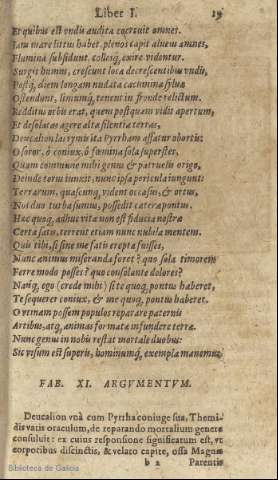 Liber I. 19
Et quibus est undis audita coercuit amnes.
Iam mare littus habet. plenos capit alueus amnes,
Flumina subsidunt. collesq́; exire videntur.
Surgit humus, crescunt loca decrescentibus vndis,
Postq́; diem longam nudata cacumina syluæ
Ostendunt, limumq́; tenent in fronde relictum.
Redditus orbis erat, quem postquam vidit apertum,
Et desolatas agere alta silentia terras,
Deucalion lacrymis ita Pyrrham affatur obortis:
O soror, ô coniux, ô fœmina sola superstes,
Quam commune mihi genus & patruelis origo,
Deinde torus iunxit, nunc ipsa pericula iungunt:
Terrarum, quascunq; vident occasus, & ortus,
Nos duo turba sumus, possedit cætera pontus.
Hæc quoq; adhuc vitæ non est fiducia nostræ
Certa satis, terrent etiam nunc nubila mentem.
Quis tibi, si sine me fatis erepta fuisses,
Nunc animus miseranda foret? quo sola timorem
Ferre modo posses? quo consolante dolores?
Nanq́; ego (crede mihi) si te quoq; pontus haberet,
Te sequerer coniux, & me quoq; pontus haberet.
O vtinam possem populos reparare paternis
Artibus, atq; animas formatæ infundere terræ.
Nunc genus in nobis restat mortale duobus:
Sic visum est superis, hominumq́; exempla manemus
FAB. XI. ARGVMENTVM.
Deucalion vnà cum Pyrrha coniuge sua, Themi-
dis vatis oraculum, de reparando mortalium genere
consuluit: ex cuius responsione significatum est, vt
corporibus discinctis, & velato capite, ossa Magnæ
b 2 Parentis
Biblioteca de Galicia